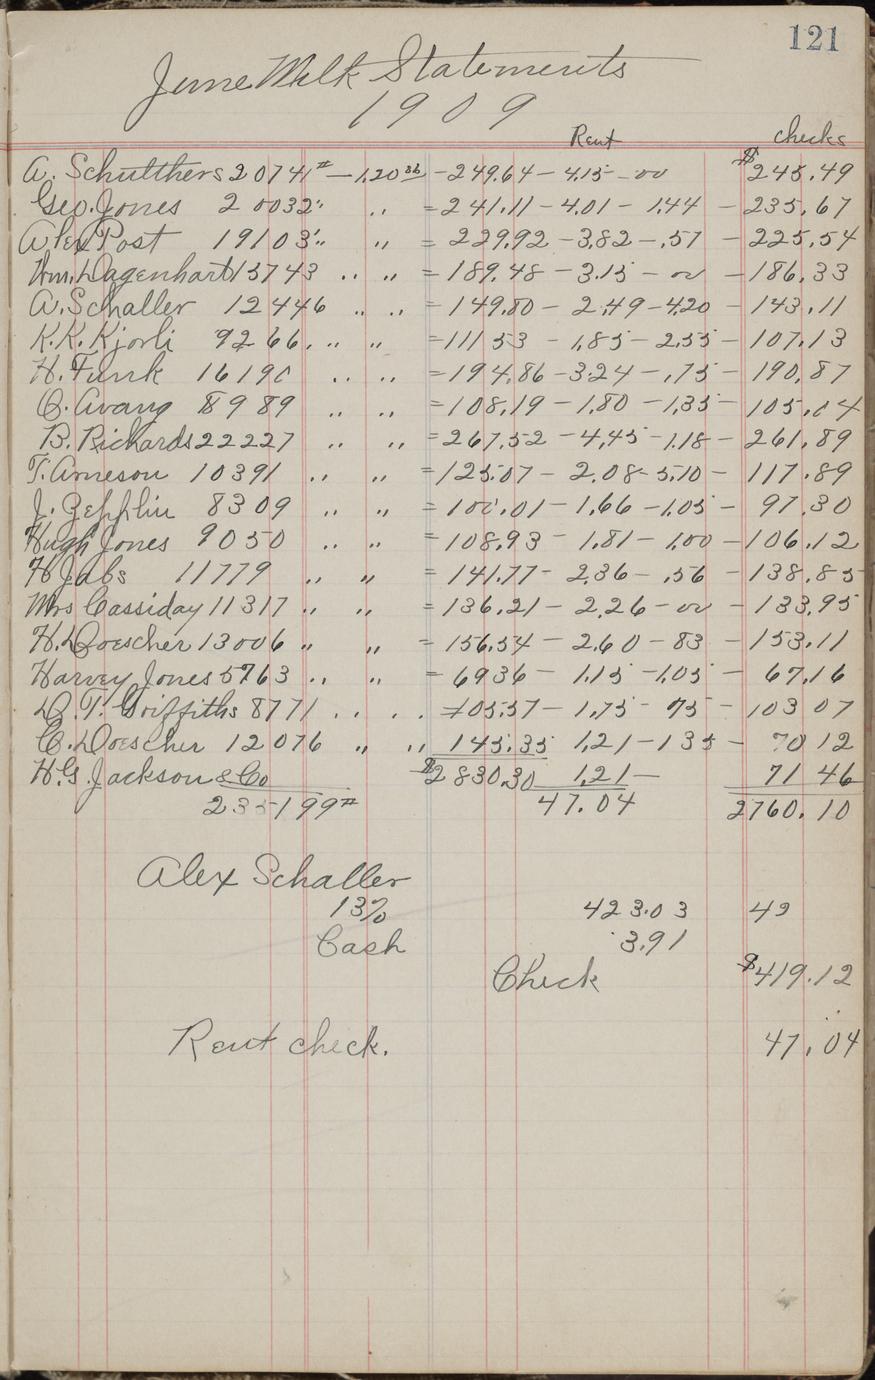 121
June Milk Statements
1909
Rent checks
A. Schutthers 20741# — 1.20 36 - 249.64 - 4.15 - 00 $245.49
Geo. Jones 20032" " = 241.11 - 4.01 - 1.44 - 235.67
Alex Post 19103" " = 229.92 - 3.82 - .57 - 225.54
Wm. Dagenhart 15743 " " = 189.48 - 3.15 - 00 - 186.33
A. Schaller 12446 " " = 149.80 - 2.49 - 4.20 - 143.11
K.K. Kjorli 9266 " " = 111 53 - 1.85 - 2.55 - 107.13
H. Funk 16190 " " = 194.86 - 3.24 - .75 - 190.87
O. Avang 8989 " " = 108.19 - 1.80 - 1.35 - 105.04
B. Rickards 22227 " " = 267.52 - 4.45 - 1.18 - 261.89
T. Arneson 10391 " " = 125.07 - 2.08 - 5.10 - 117.89
J. Zepplin 8309 " " = 100.01 - 1.66 - 1.05 - 97.30
Hugh Jones 9050 " " = 108.93 - 1.81 - 1.00 - 106.12
H Jabs 11779 " " = 141.77 - 2.36 - .56 - 138.85
Mrs Cassiday 11317 " " = 136.21 - 2.26 - 00 - 133.95
H. Doescher 13006 " " = 156.54 - 2.60 - 83 - 153.11
Harvey Jones 5763 " " = 6936 - 1.15 - 1.05 - 67.16
D. T. Griffiths 8771 " " = 105.57 - 1.75 - 75 - 103 07
C. Doescher 12076 " " 145.35 1.21 - 135 - 70 12
H.G. Jackson & Co $2830.30 1.21 - 71 46
235199# 47.04 2760.10
Alex Schaller
13% 423.03 49
Cash 3.91
Check $419.12
Rent check. 47.04